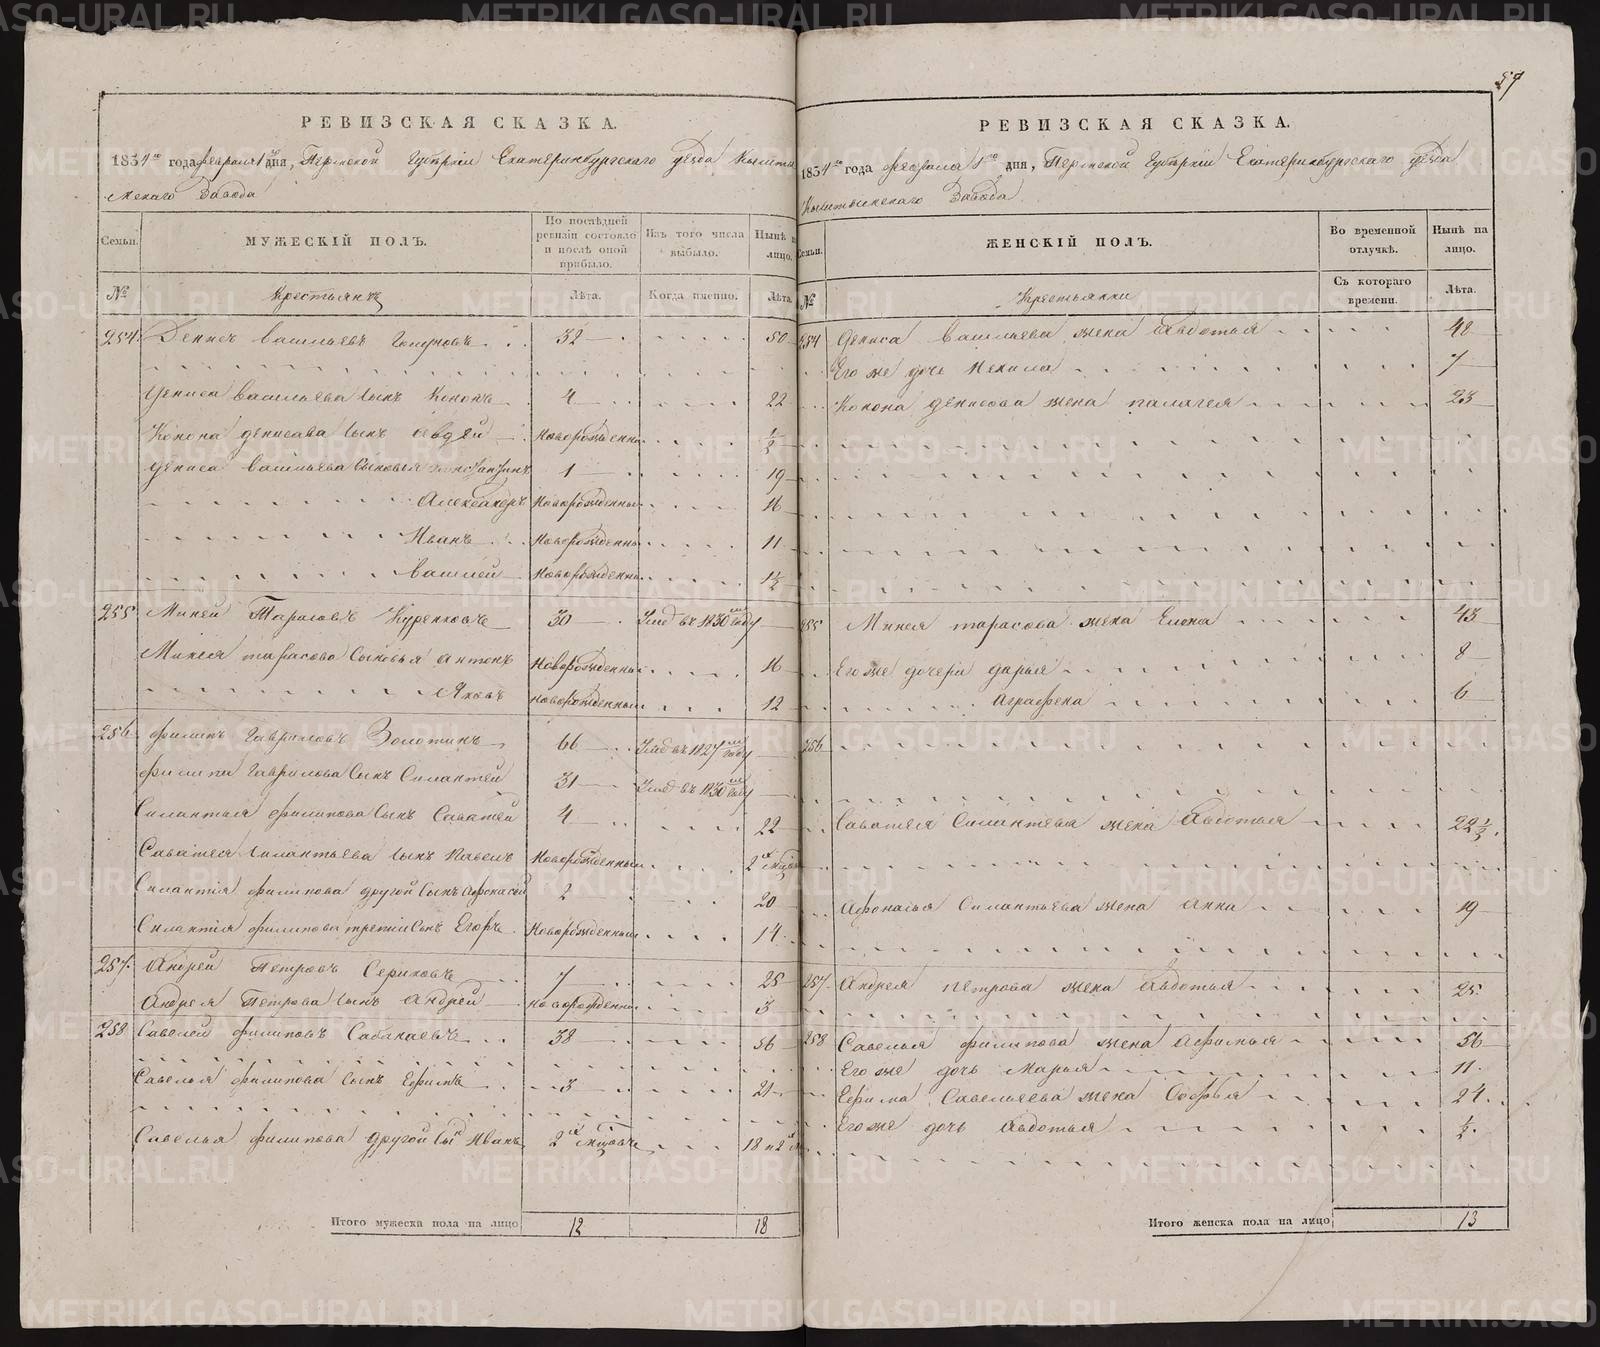 57
РЕВИЗСКАЯ СКАЗКА.
1834го года февраля 1го дня, Пермской Губернии Екатеринбургского уезда Кышты
мскаго Завода
Семьи.
МУЖЕСКІЙ ПОЛЪ.
По послѣдней ревизіи состояло и послѣ оной прибыло.
Изъ того числа выбыло.
Нынѣ на лицо.
№
Крестьянъ
Лѣта.
Когда именно.
Лѣта.
254. Денисъ Васильевъ 32 50
Дениса Васильева сынъ Кононъ 4 22
Конона Денисова сынъ Авдей Новорожденны ½
Дениса Васильева Сыновья 1 19
Александръ Новорожденны 16
Иванъ Новорожденны 11
Василей Новорожденны 1½
255 Миней Тарасовъ Куренковъ 30 Умр въ 1830м году
Минея Тарасова Сыновья Антонъ Новорожденны 16
Яковъ Новорожденны 12
256 Филипъ Гавриловъ Золотинъ 66 Умр въ 1827м году
Филипа Гаврилова Сынъ Силантей 31 Умр въ 1830м году
Силантья Филипова Сынъ Саватей 4 22
Саватея Силантьева сынъ Павелъ Новорожденны 2х
Силантія Филипова другой Сынъ Афонасей 2 20
Силантія Филипова третий Сынъ Егоръ Новорожденны 14
257. Андрей Петровъ Сериковъ 7 25
Андрея Петрова сынъ Андрей новорожденны 3
258 Савелей Филиповъ Сабанаевъ 38 56
Савелья Филипова сынъ Ефимъ 3 21
Савелья Филипова другой Сын Иванъ 2х 18 и 2
Итого мужеска пола на лицо 12 18
РЕВИЗСКАЯ СКАЗКА.
1834го года февраля 1го дня, Пермской Губерніи Екатеринбургскаго уезда
Кыштымскаго Завода
Семьи.
ЖЕНСКІЙ ПОЛЪ.
Во временной отлучкѣ.
Нынѣ на лицо.
№
Крестьянки
Съ котораго времени.
Лѣта.
254 Дениса Васильева жена Авдотья 42
Его же дочь 7
Конона Денисова жена Палагея 23
255 Минея Тарасова жена Елена 43
Его же дочери Дарья 8
Аграфена 6
256
Саватея Силантьева жена Авдотья 22½.
Афонасья Силантьева жена Анна 19
257. Андрея Петрова жена Авдотья 25
258 Савелья Филипова жена Афимья 56
Его же дочь Марья 11.
Ефима Савельева жена Софья 24.
Его же дочь Авдотья ½.
Итого женска пола на лицо 13
METRIKI.GASO-URAL.RU